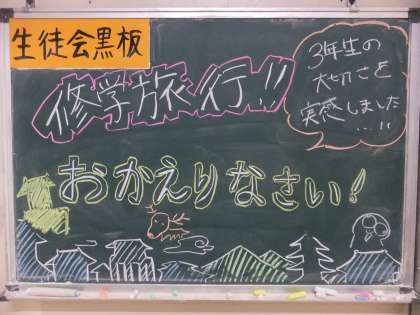 生徒会黒板
修学旅行!!
3年生の
大切さを
実感しました
...!!
おかえりなさい!